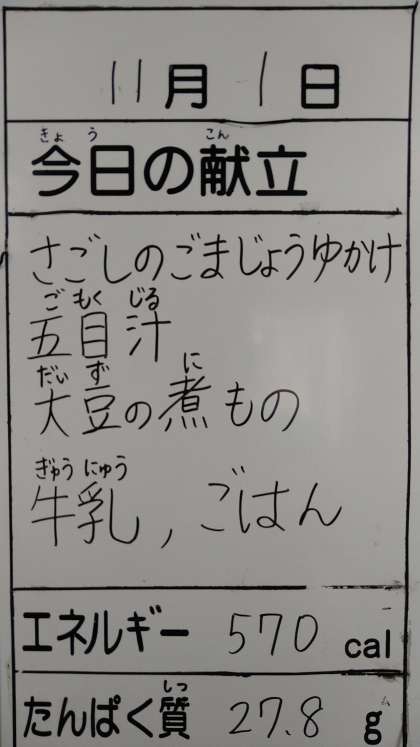 11月1日
きょう こん
今日の献立
さごしのごまじょうゆかけ
ごもくじる
五目汁
だいず に
大豆の煮もの
ぎゅうにゅう
牛乳,ごはん
エネルギー 570 cal
しつ
たんぱく質 27.8 g